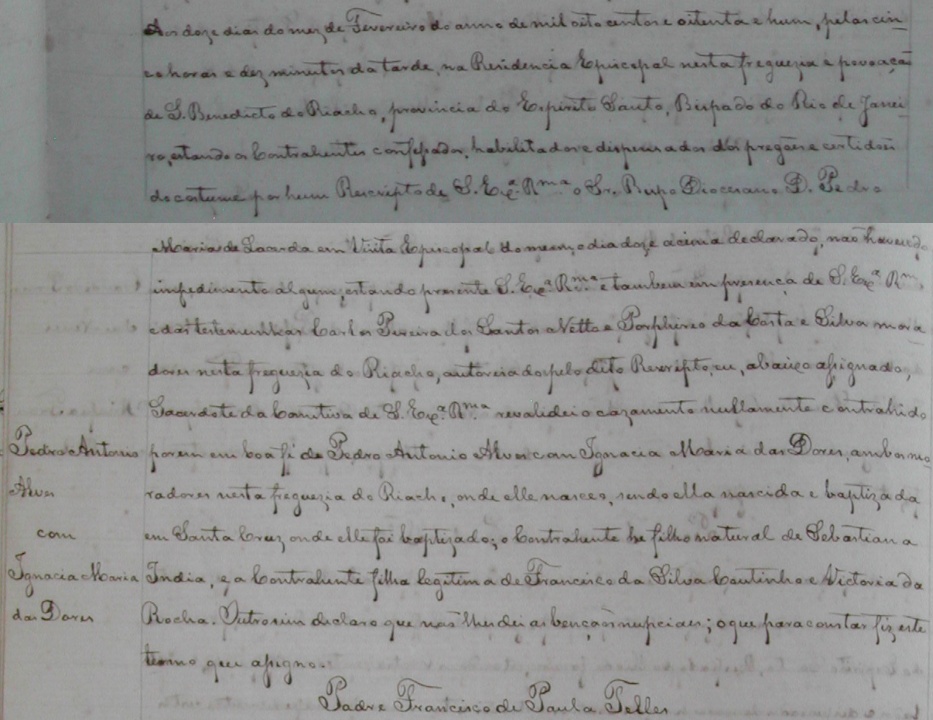 Aos doze dias do mez de Fevereiro do anno de mil oito centos e oitenta e hum, pelas cin
co horas e dez minutos da tarde, na Residencia Episcopal nesta freguezia e povoação
de S. Benedicto do Riacho, provincia do Espirito Santo, Bispado do Rio de Janei
ro, estando os Contrahentes confessados, habilitados e dispensados dos pregões e certidões
do costume por hum Rescripto de S. Exª. Rmª o Sr. Bispo Diocesano D. Pedro
Maria de Lacerda em Visita Episcopal do mesmo dia doze acima declarado, não havendo
impedimento algum, estando presente S. Exª. Rmª e tambem em presença de S. Exª Rmª
e das testemunhas Carlos Pereira dos Santos Netto e Porphireo da Costa e Silva mora
dores nesta freguezia do Riacho, autorisado pelo dito Rescripto, eu, abaixo assignado,
Sacerdote da Comitiva de S. Exª. Rmª revalidei o cazamento nullamente contrahido
porem em boa fé de Pedro Antonio Alves com Ignacia Maria das Dores, ambos mo
Pedro Antonio
radores nesta freguezia do Riacho, onde elle nasceo, sendo ella nascida e baptizada
Alves
em Santa Cruz onde elle foi baptizado; o Contrahente he filho natural de Sebastiana
com
India, e a Contrahente filha legitima de Francisco da Silva Coutinho e Victoria da
Ignacia Maria
Rocha. Outrosim declaro que não lhes dei as bençãos nupciaes; o que para constar fiz este
das Dores
termo que assigno.
Padre Francisco de Paula Telles